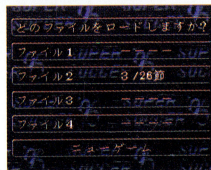 どのファイルをロードしますか?
ファイル1 ーーー
ファイル2 3/26節
ファイル3 ーーー
ファイル4 ーーー
ニューゲーム